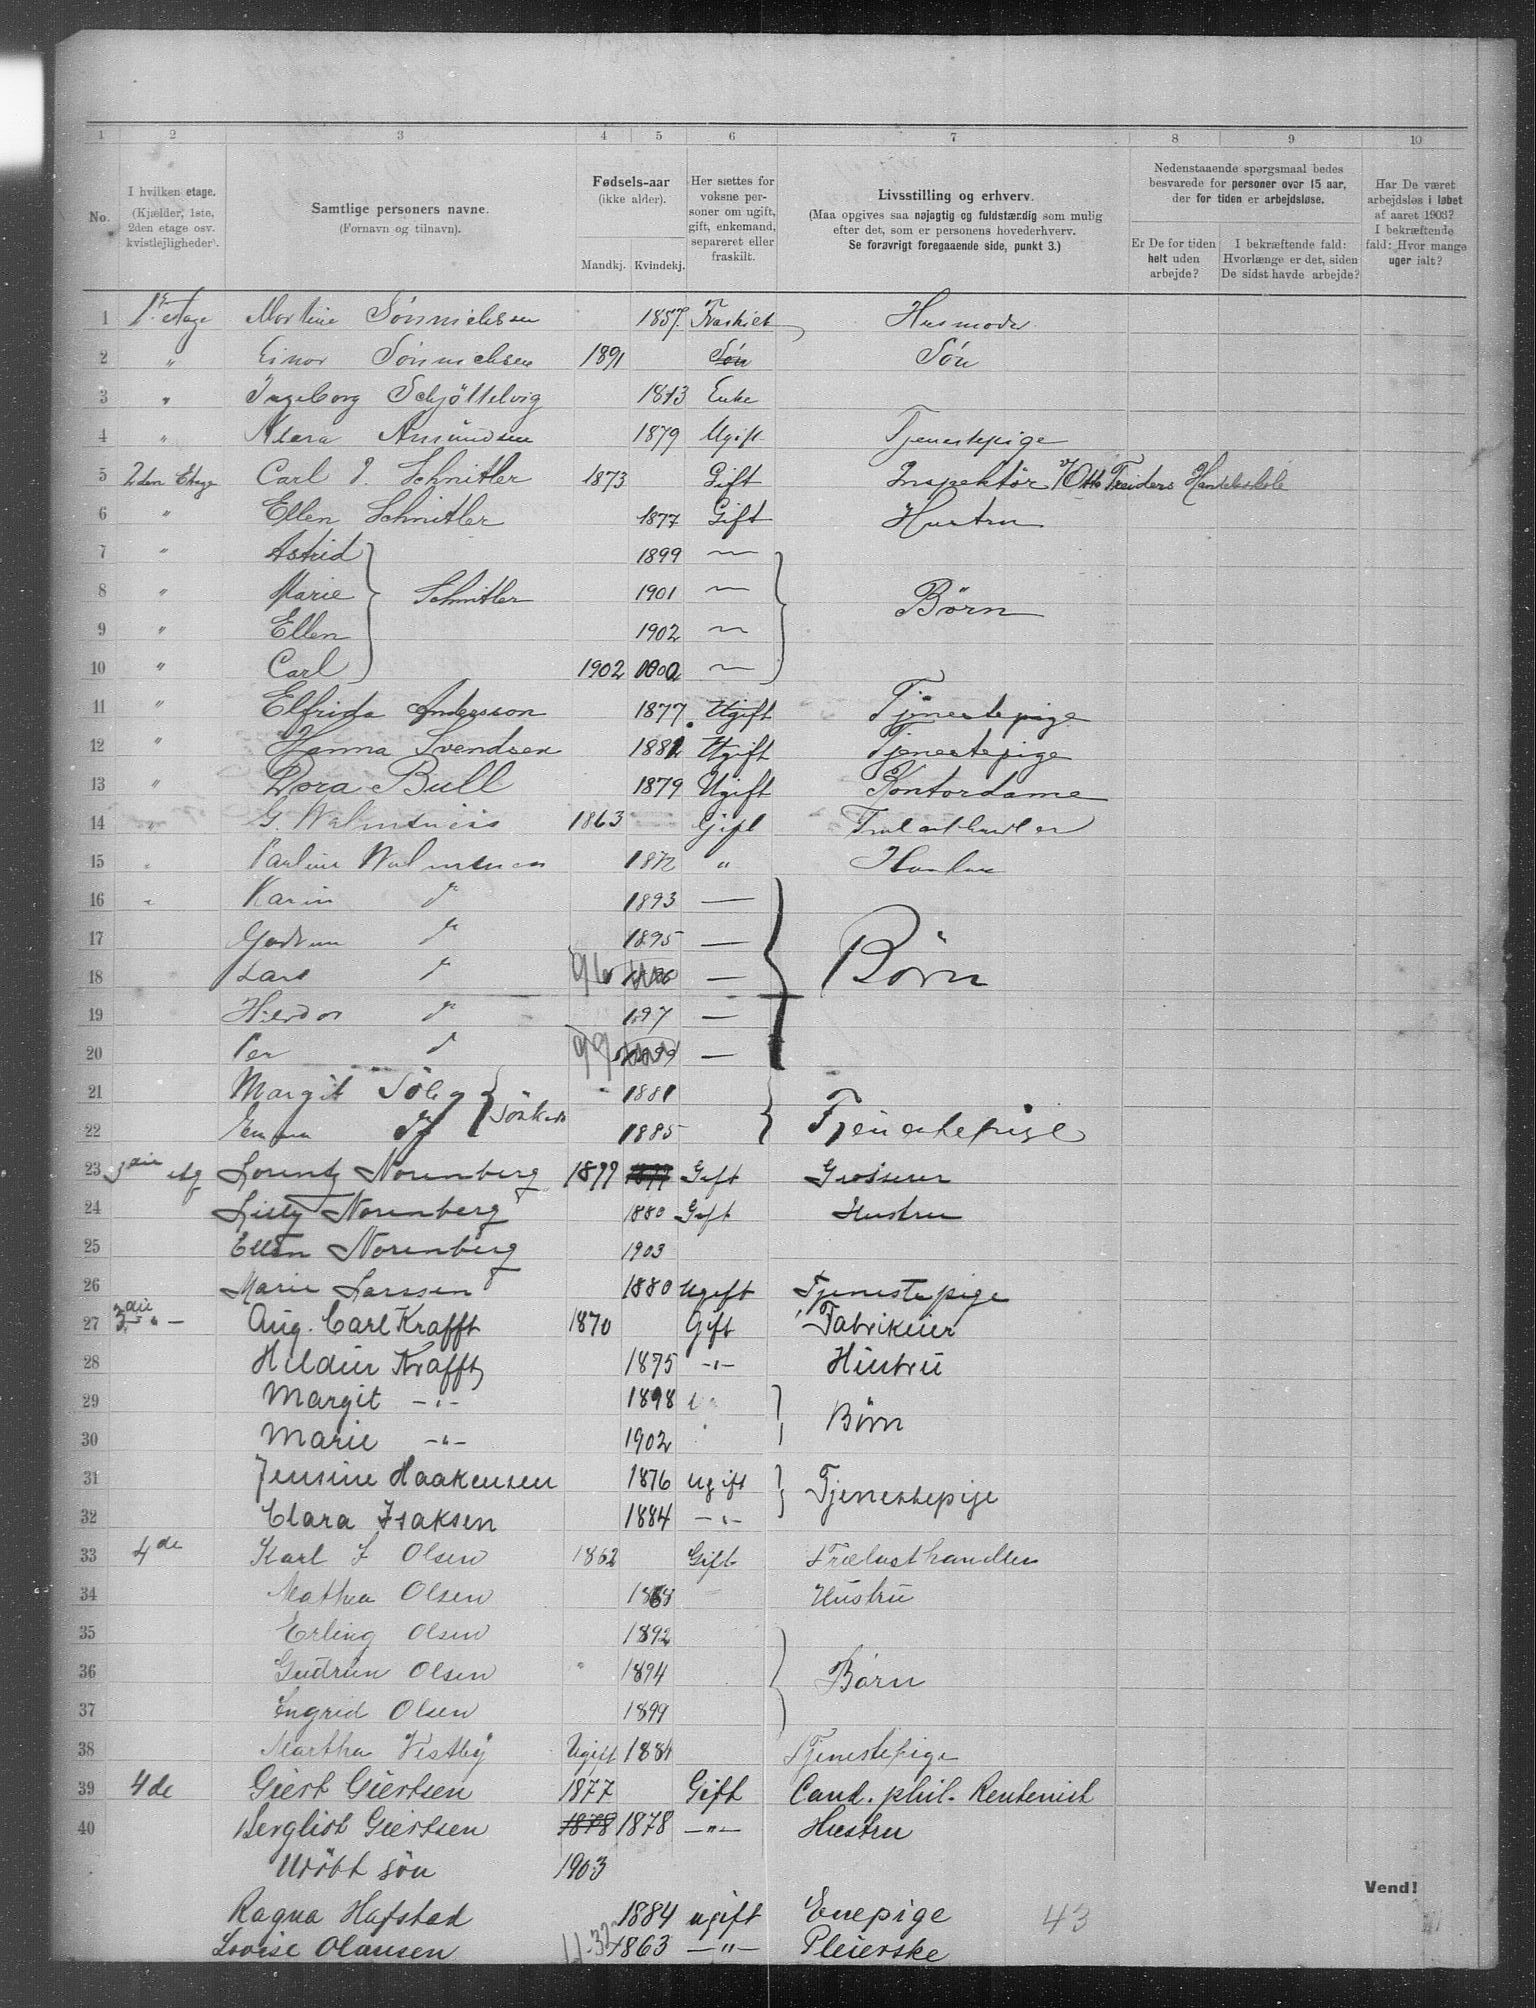 1 2 3 4 5 6 7 8 9 10
No. I hvilken etage. (Kjælder, 1ste, 2den etage osv. kvistlejligheder). Samtlige personers navne. (Fornavn og tilnavn). Fødsels-aar (ikke alder). Mandkj. Kvindekj. Her sættes for voksne personer om ugift, gift, enkemand, separeret eller fraskilt. Livsstilling og erhverv. (Maa opgives saa nøjagtig og fuldstændig som mulig efter det, som er personens hovederhverv. Se forøvrigt foregaaende side, punkt 3.) Nedenstaaende spørgsmaal bedes besvarede for personer over 15 aar, der for tiden er arbejdsløse. Er De for tiden helt uden arbejde? I bekræftende fald: Hvorlænge er det, siden De sidst havde arbejde? Har De været arbejdsløs i løbet af aaret 1903? I bekræftende fald: Hvor mange uger ialt?
1 1. etage Martine Sönnichsen 1857 Fraskilt Husmoder
2 " Einar Sönnichsen 1891 Sön Sön
3 " Ingeborg Schjöttelvig 1813 Enke
4 " Klara Amundsen 1879 Ugift Tjenestepige
5 2den Etage Carl J. Schnitler 1873 Gift Inspektör v/ Otto Treiders Handelsskole
6 " Ellen Schnitler 1877 Gift Hustru
7 " Astrid 1899 —
8 " Marie Schnitler 1901 — Börn
9 " Ellen 1902 —
10 " Carl 1902 —
11 " Elfrida Andersson 1877 Ugift Tjenestepige
12 " Hanna Svendsen 1881 Ugift Tjenestepige
13 " Dora Bull 1879 Ugift Kontordame
14 " G. 1863 Gift Trælasthandler
15 " 1872 "
16 " Karin d 1893 —
17 Gudrun d 1895 — Børn
18 Lars d 96 —
19 d 1897 —
20 Per d 99 1899 —
21 Margit 1881
22 Emma 1885 Tjenestepige
23 3die etg Lorentz Norenberg 1877 1877 Gift Grosserer
24 Lilly Norenberg 1880 Gift Hustru
25 Ellen Norenberg 1903
26 Marie Larssen 1880 Ugift Tjenestepige
27 3die " — Aug. Carl Krafft 1870 Gift Fabrikeier
28 Hildur Krafft 1875 -"- Hustru
29 Margit -"- 1898 Børn
30 Marie -"- 1902
31 Jensine Haakensen 1876 ugift Tjenestepige
32 Clara Isaksen 1884 -"-
33 4de Karl J Olsen 1862 Gift Trælasthandler
34 Mathea Olsen 1868 Hustru
35 Erling Olsen 1892
36 Gudrun Olsen " 1894 Børn
37 Ingrid Olsen 1899
38 Martha Vestby Ugift 1884 Tjenestepige
39 4de Giert Giertsen 1877 Gift Cand. phil. Rentenist
40 Bergliot Giertsen 1878 1878 -"- Hustru
Udöbt sön 1903
Vend!
Ragna Hafstad 1884 ugift Enepige 43
Lovise Olausen 1863 -"- Pleierske